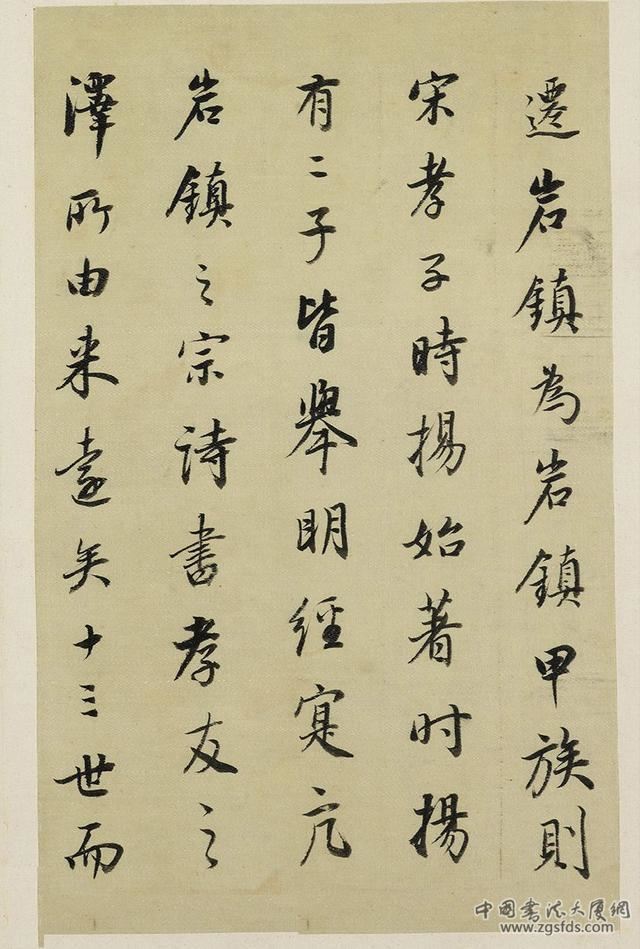 遷岩鎮為岩鎮甲族則
宋孝子時揚始著时揚
有二子皆舉明經寔亢
岩鎮之宗詩書孝友之
澤所由来遠矣十三世而
中国书法大厦網
www.zgsfds.com